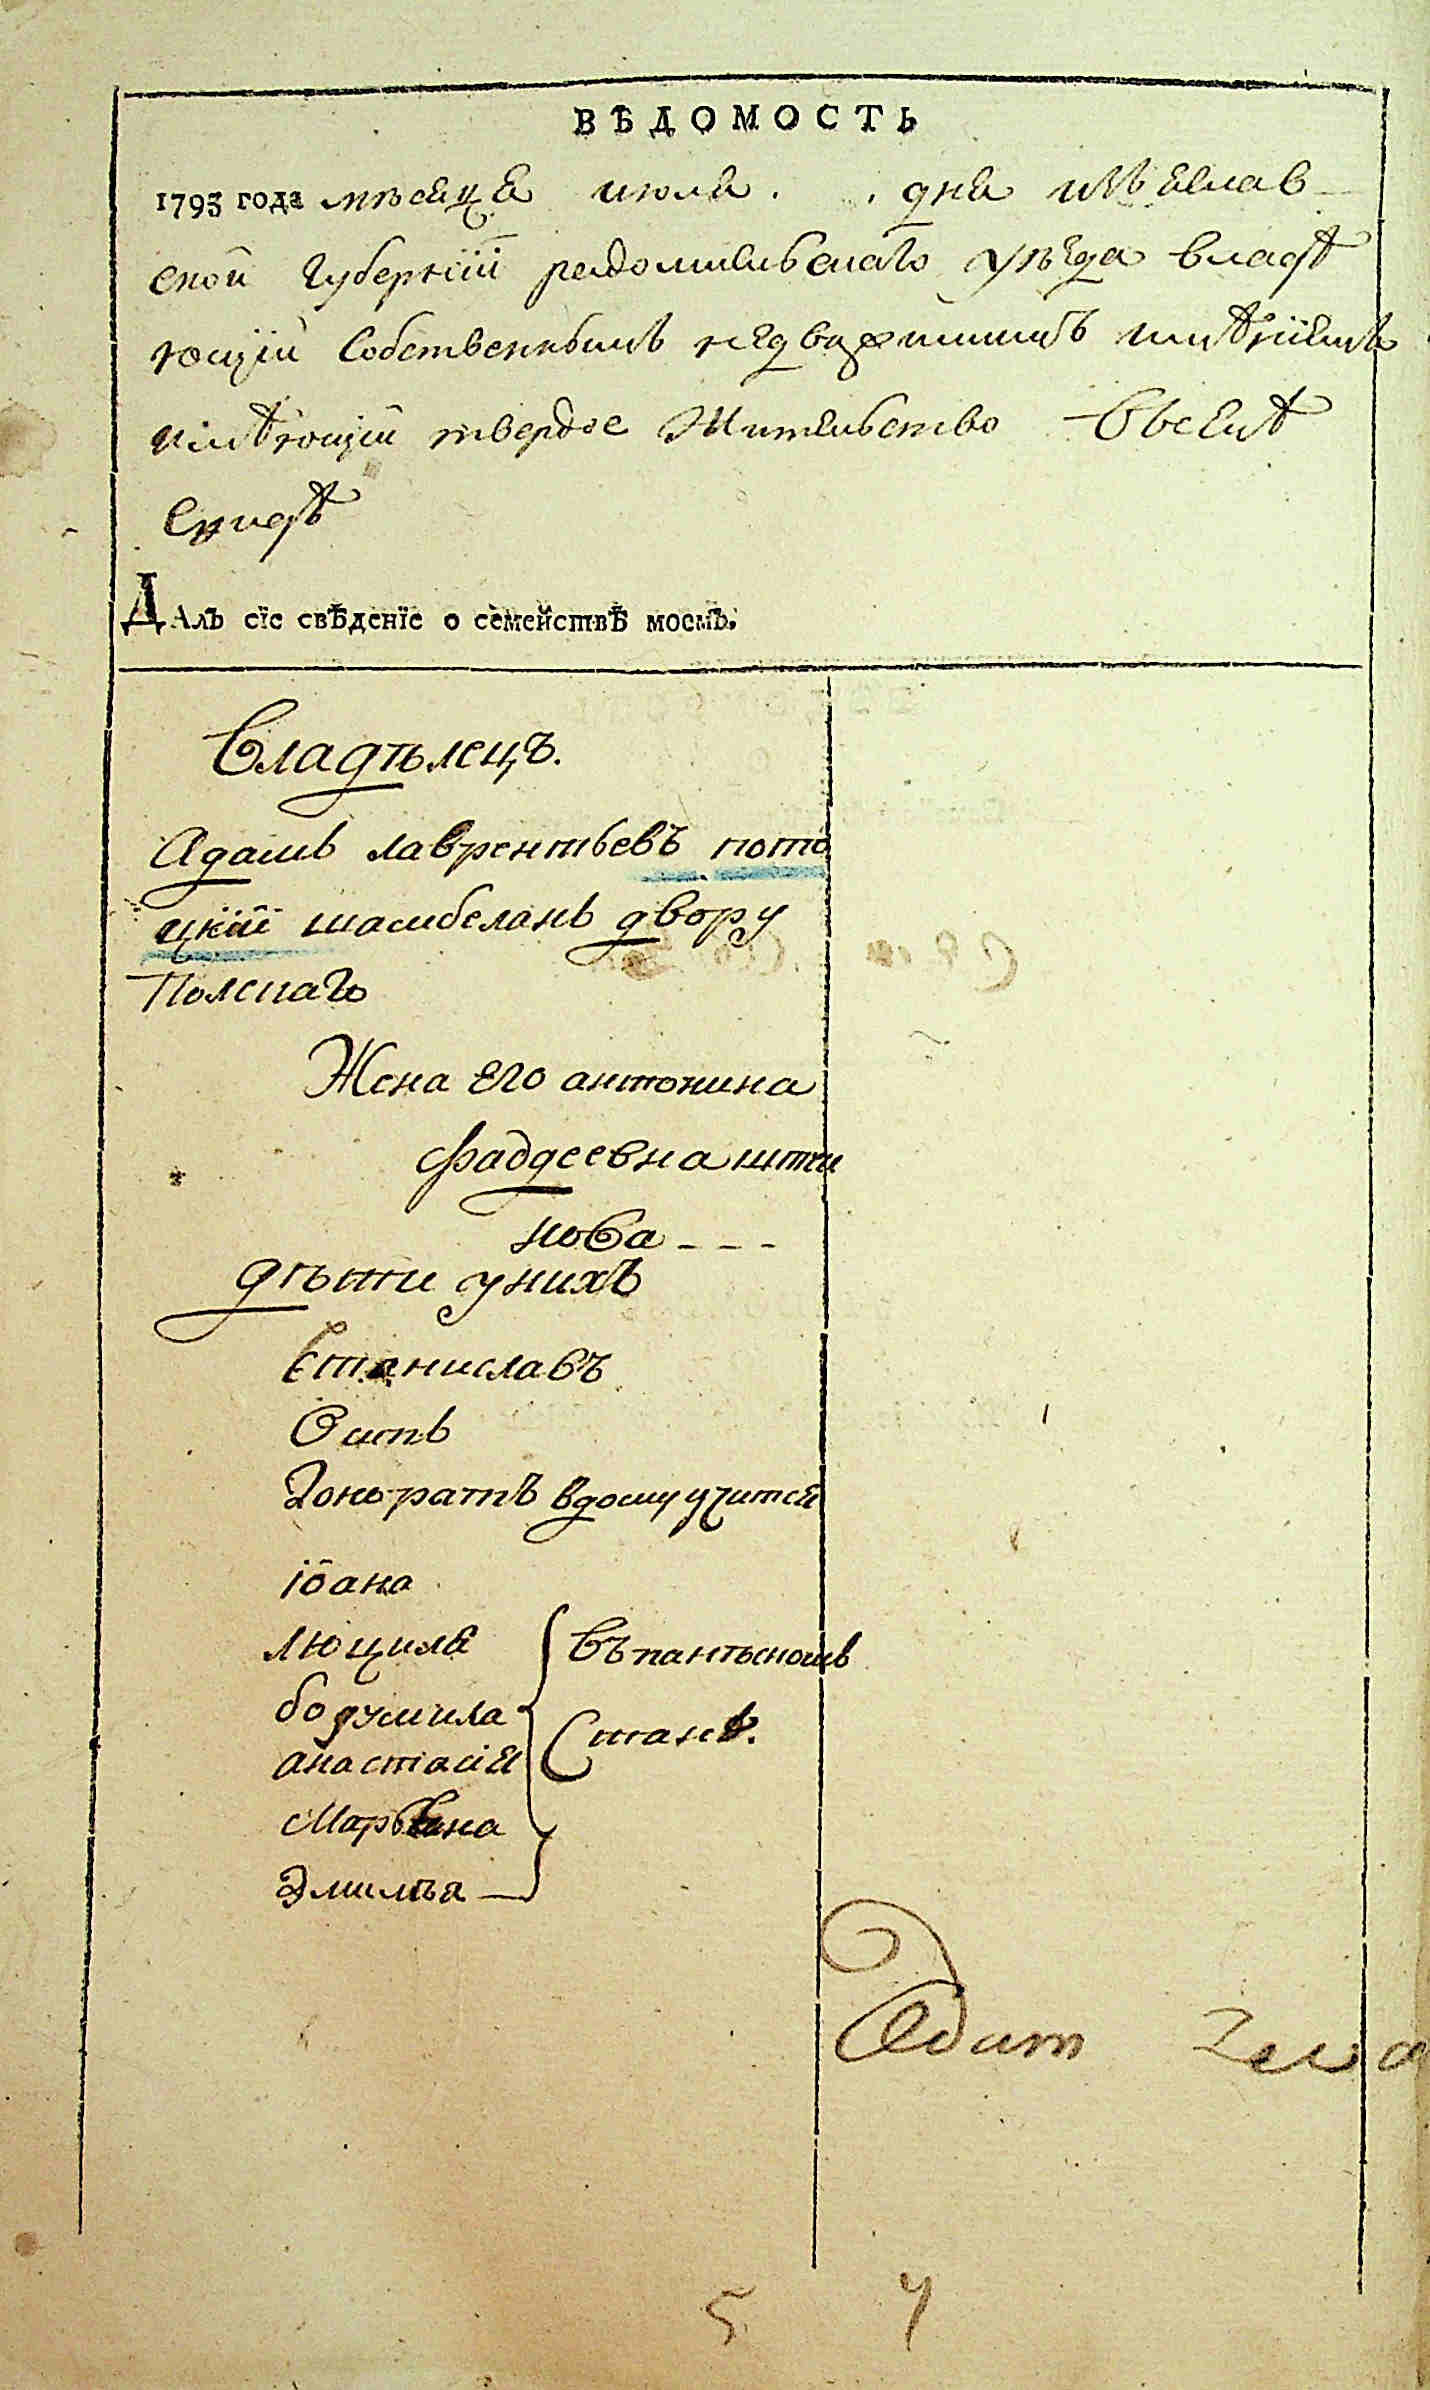 ВѢДОМОСТЬ
1793 года мѣсяца июля . . дня изѣяслав-
ской губернїй радомисльскаго уѣзда владѣ
ющїй собственнымъ недвижимимъ имѣнїемъ
имѣющїй твердое жительство въселѣ
Далъ сїе свѣденїе о семействѣ моемъ.
Владѣлецъ.
Адамъ лаврентьевъ пото
цкїй шамбеланъ двору
Полскаго
Жена его антонина
Фаддеевна
дѣти унихъ
Станиславъ
Осипъ
гоноратъ вдому учится
іоана
люциля
богумила
анастасія
Марьяна
Эмилѣа
въпанѣскомъ
Станѣ.
5 4